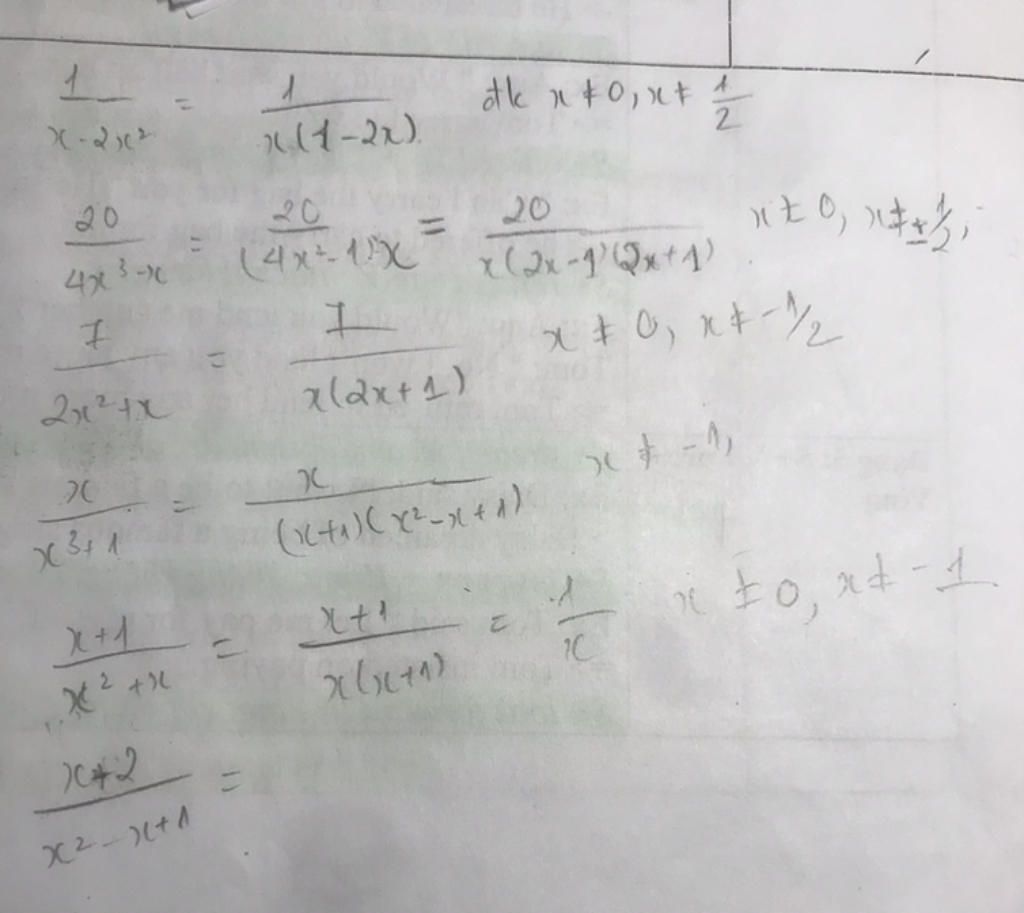 1/(x - 2x²) = 1/(x(1-2x)) đk x ≠ 0, x ≠ 1/2
20/(4x³-x) = 20/((4x²-1)x) = 20/(x(2x-1)(2x+1)) x ≠ 0, x ≠ ± 1/2;
7/(2x²+x) = 7/(x(2x+1)) x ≠ 0, x ≠ -1/2
x/(x³+1) = x/((x+1)(x²-x+1)) x ≠ -1,
(x+1)/(x²+x) = (x+1)/(x(x+1)) = 1/x x ≠ 0, x ≠ -1
(x+2)/(x²-x+1) =